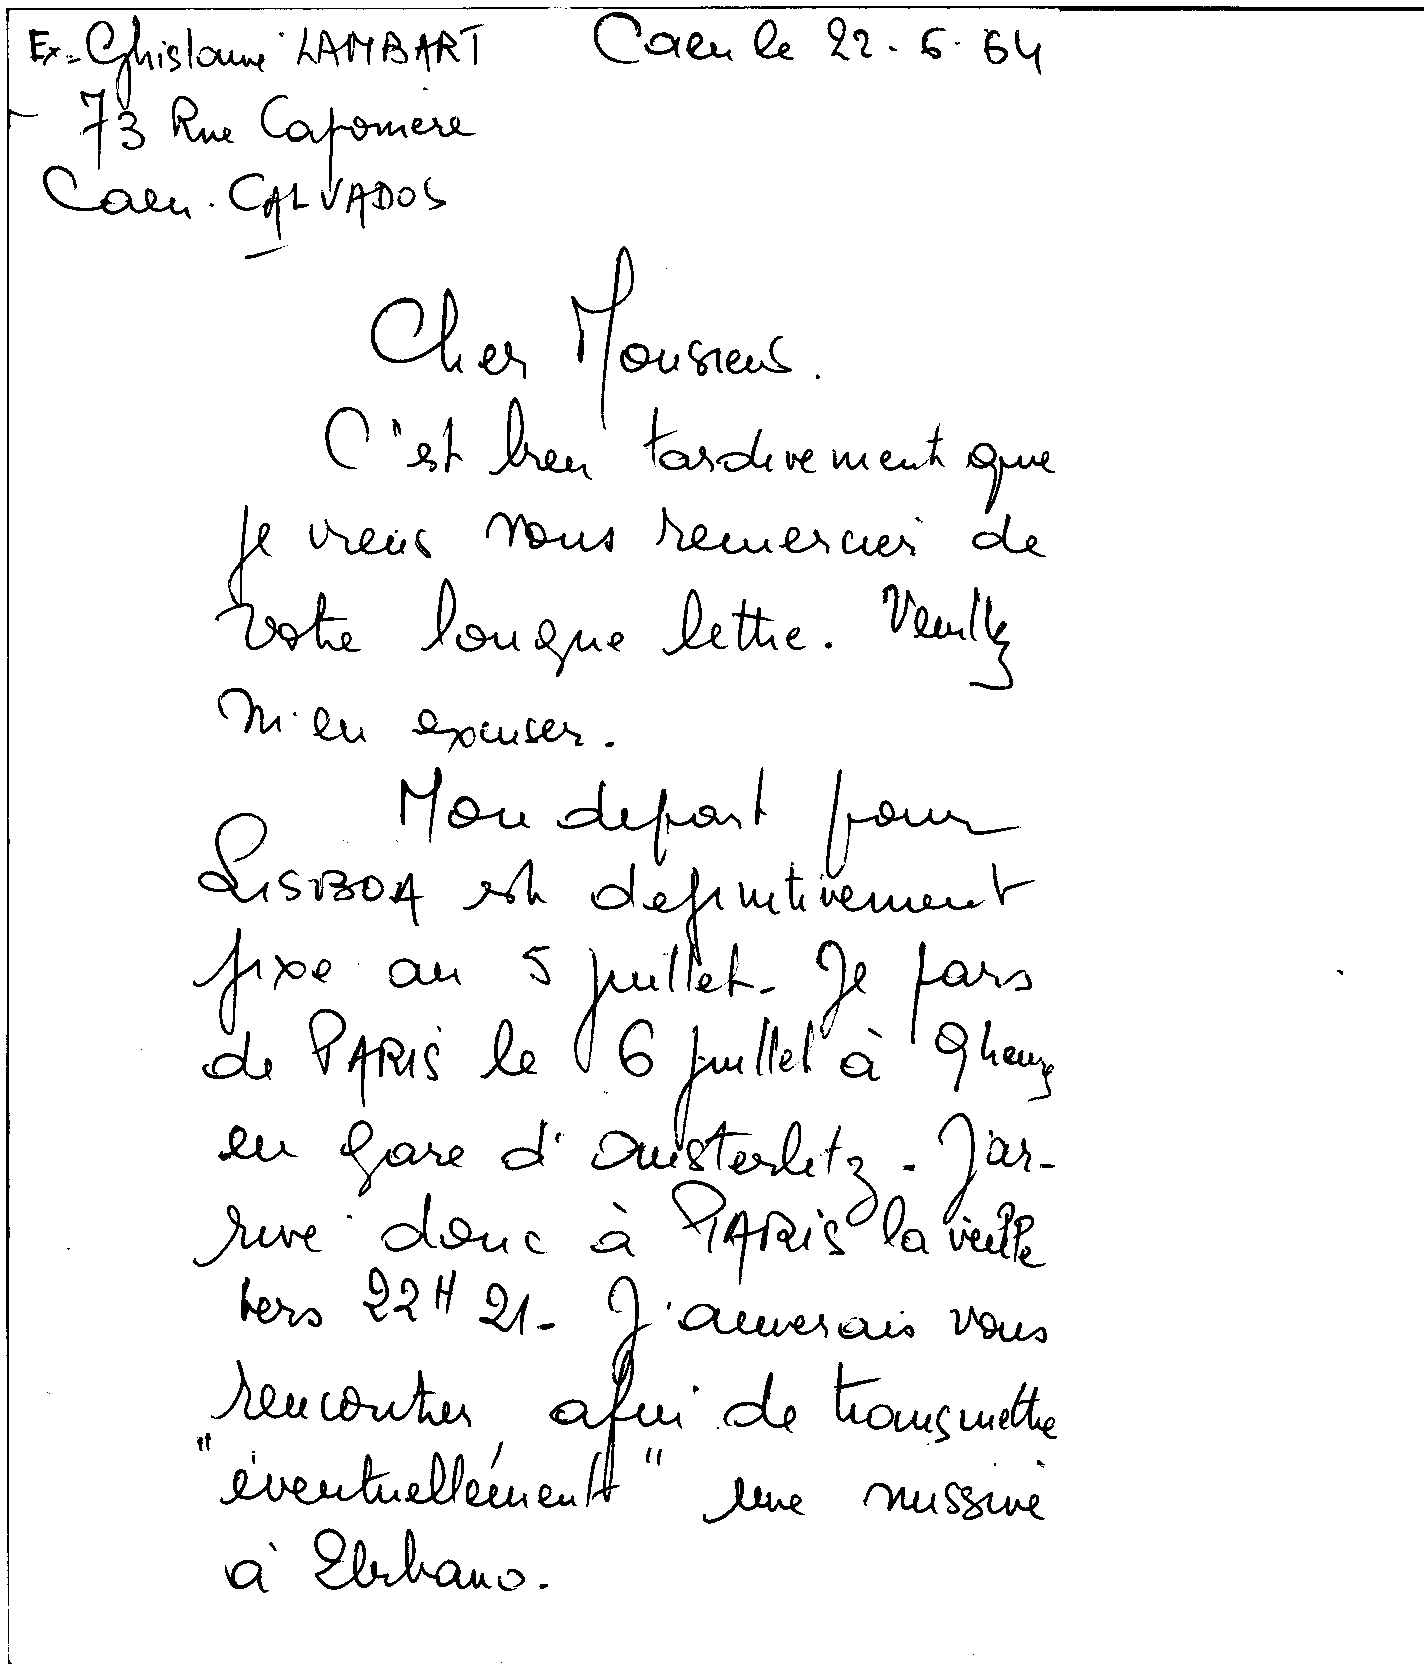 Ex. Ghislaine LAMBART Caen le 22.6.64
73 Rue Caponière
Caen. CALVADOS
Cher Monsieur.
C'est bien tardivement que
je viens vous remercier de
votre longue lettre. Veuillez
m'en excuser.
Mon depart pour
LISBOA est definitivement
fixe au 5 juillet. Je pars
de PARIS le 6 juillet à 9 heures
en gare d'Austerlitz. J'ar-
rive donc à PARIS la veille
vers 22H 21. J'aimerais vous
rencontrer, afin de transmettre
"éventuellement" une missive
à